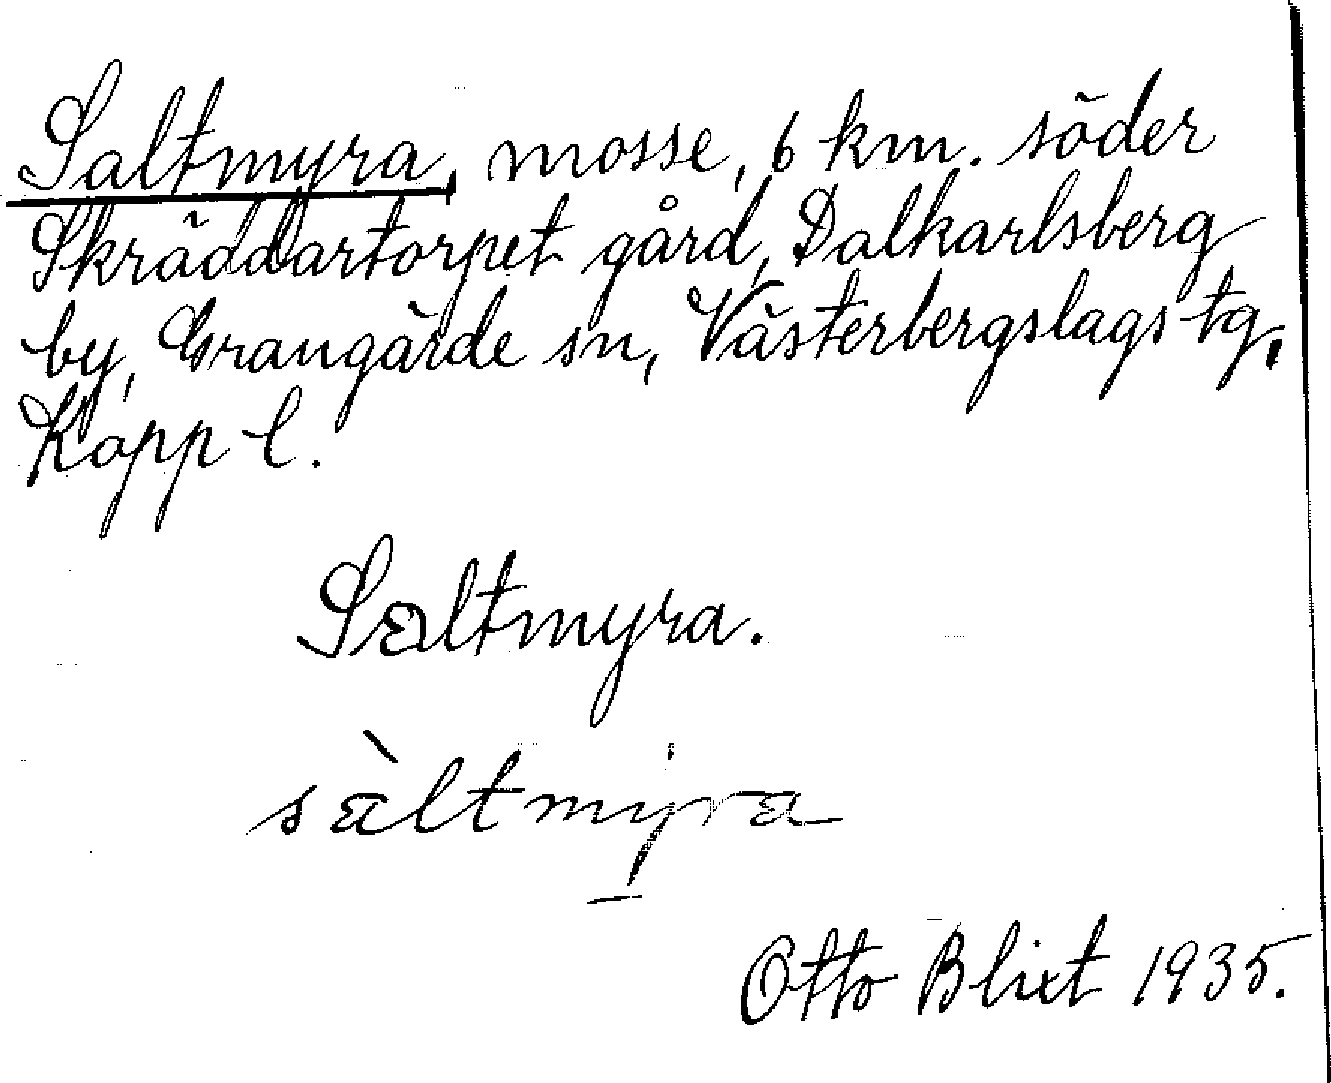 Saltmyra, mosse, 6 km. söder
Skräddartorpet gård, Dalkarlsberg
by, Grangärde sn, Västerbergslags tg,
Kopp l.
Saltmyra.
sàltmyra
Otto Blixt 1935.